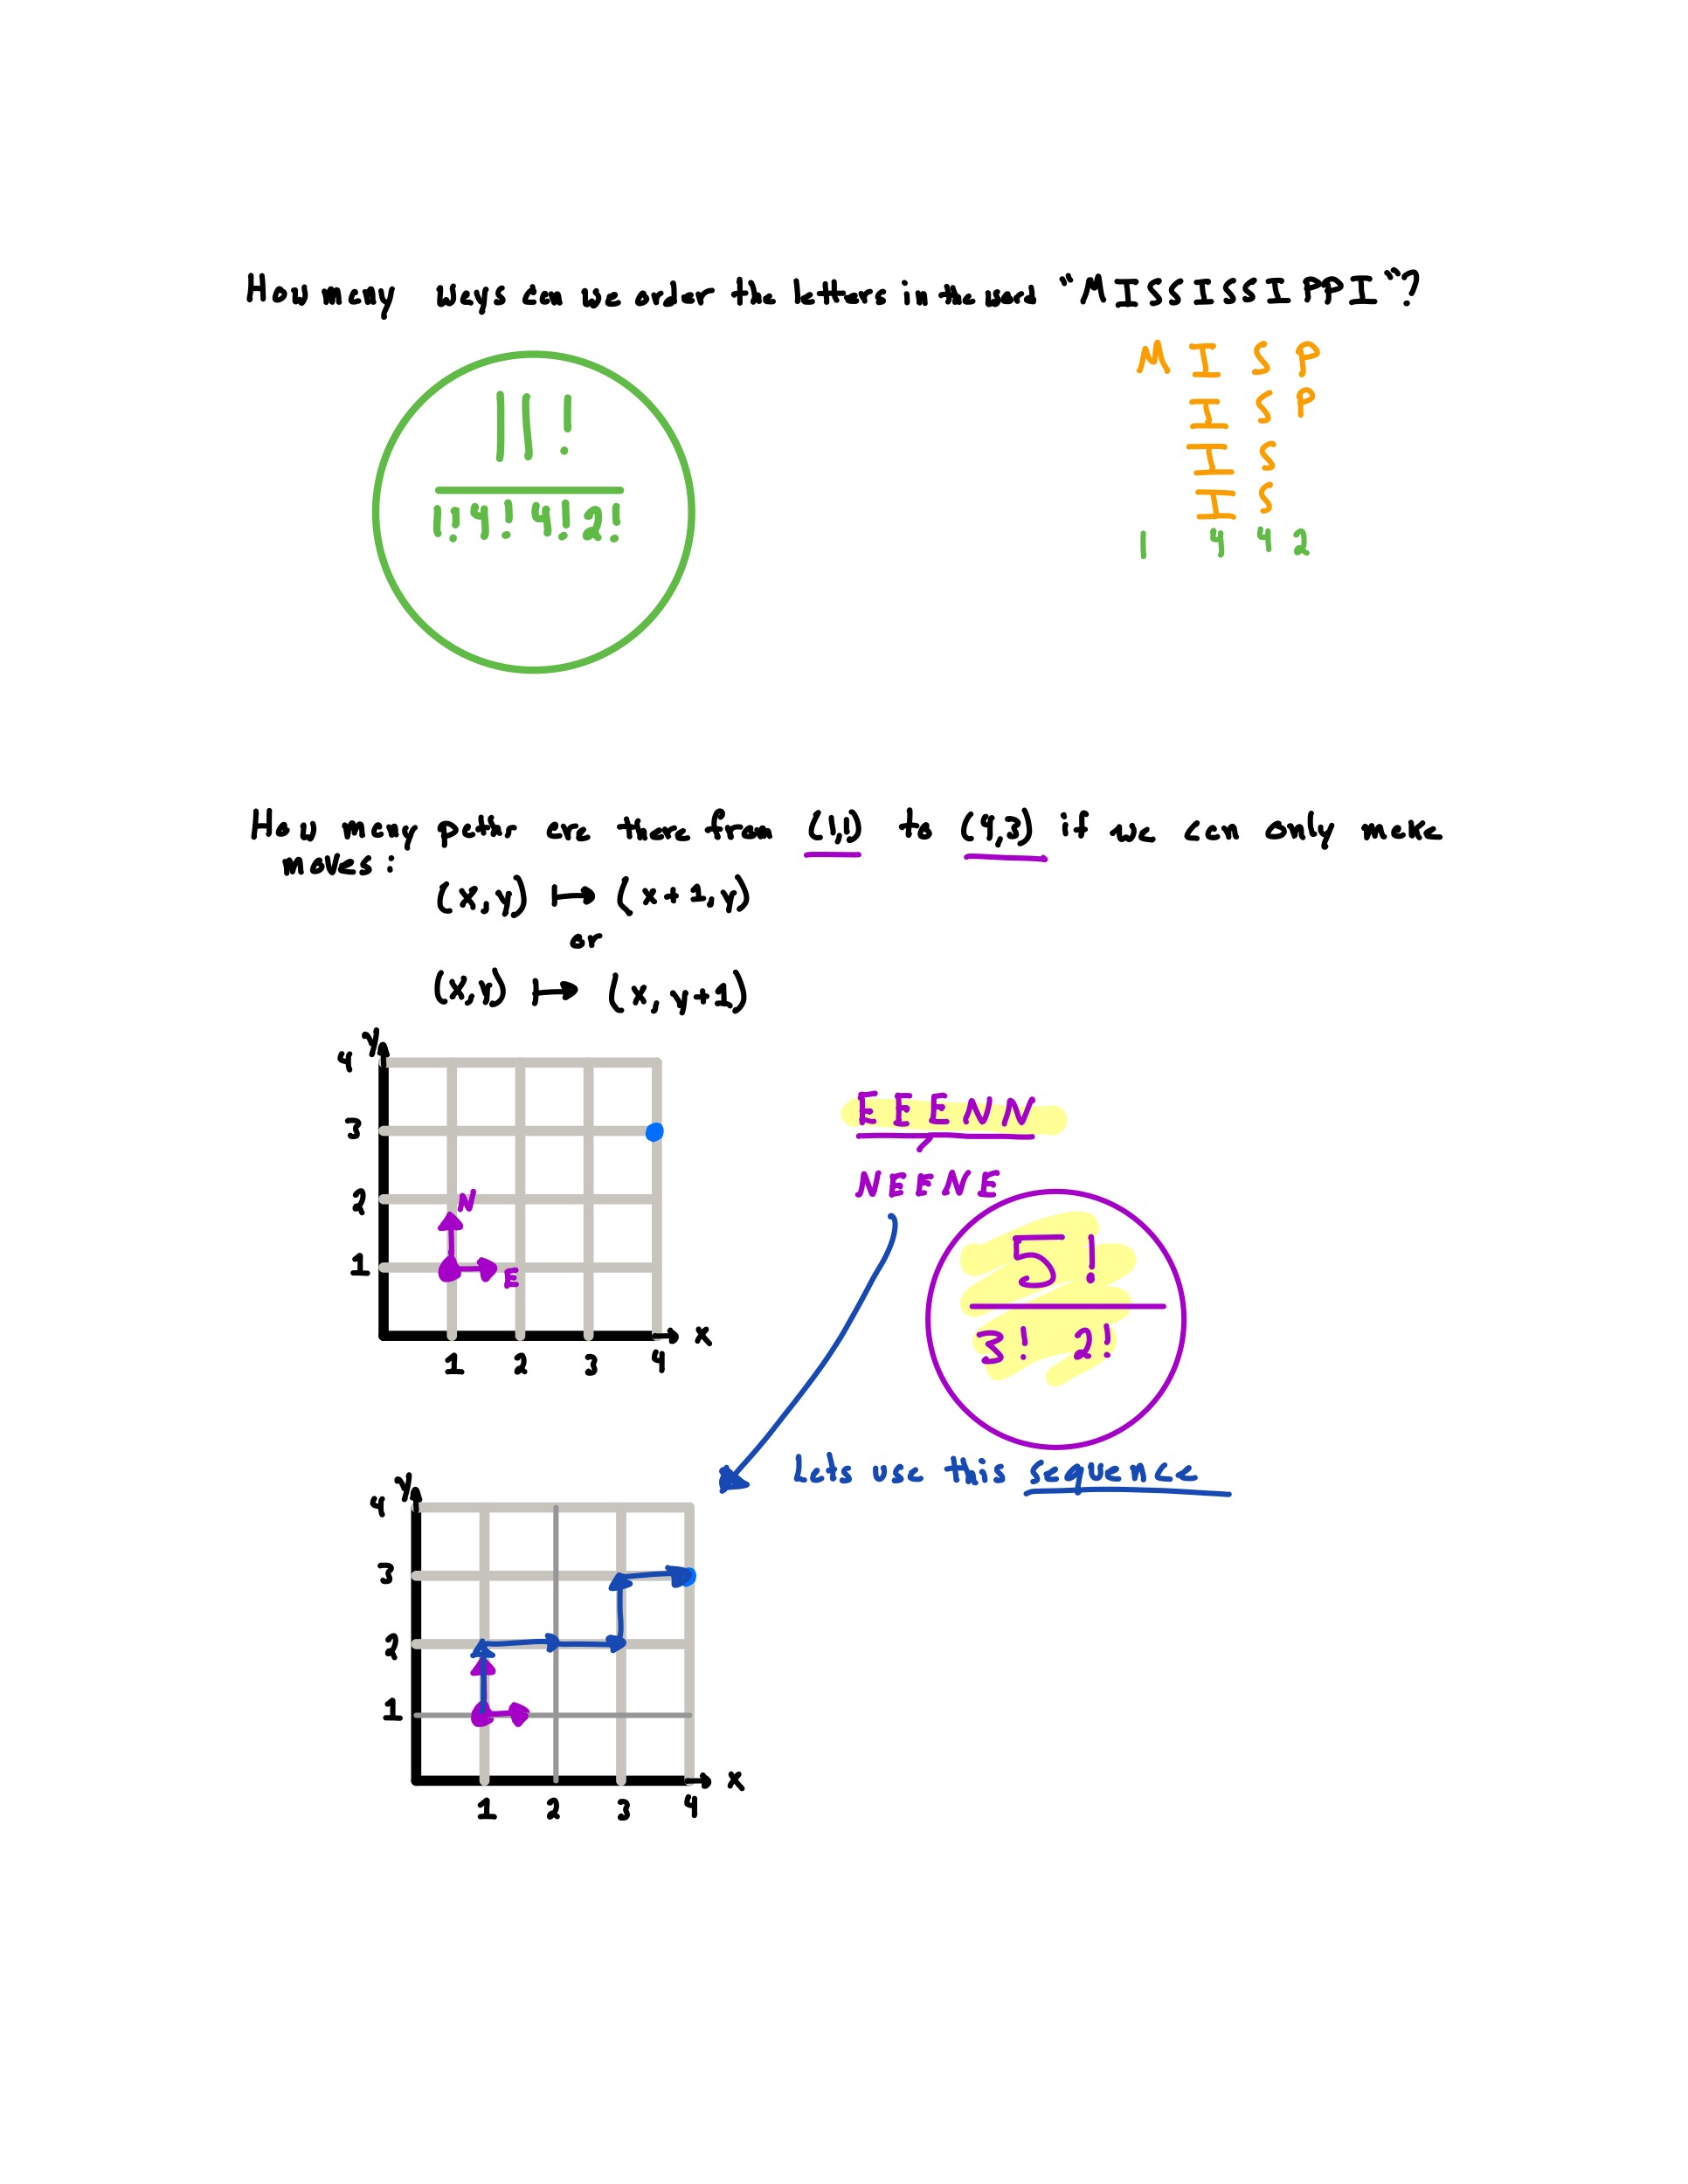 How many ways can we order the letters in the word "MISSISSIPPI"?
M I S P
I S P
I S
I S
1 4 4 2
11!
1! 4! 4! 2!
How many paths are there from (1,1) to (4,3) if we can only make
moves:
(x,y) ↦ (x+1,y)
or
(x,y) ↦ (x, y+1)
y
4
3
2
1
N
E
x
1 2 3 4
EEENN
NEENE
5!
3! 2!
Lets use this sequence
y
4
3
2
1
x
1 2 3 4